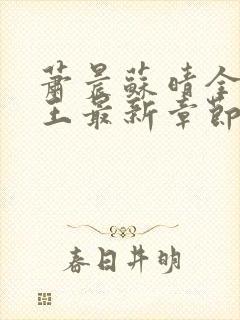 蕭晨蘇晴全
王最新章節
春日井明